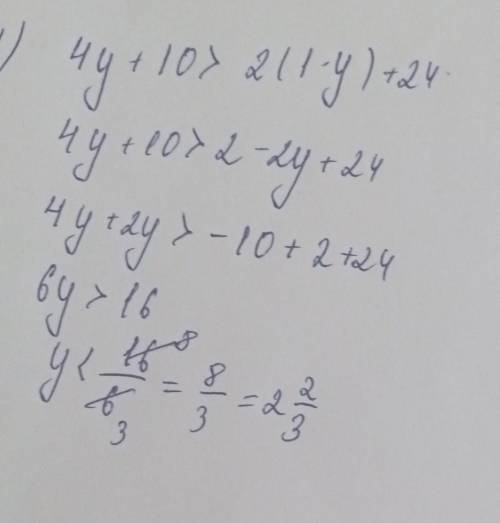 ) 4y + 10 > 2(1-y) + 24
4y + 10 > 2 - 2y + 24
4y + 2y > -10 + 2 + 24
6y > 16
y < 16 8 / 6 3 = 8/3 = 2 2/3